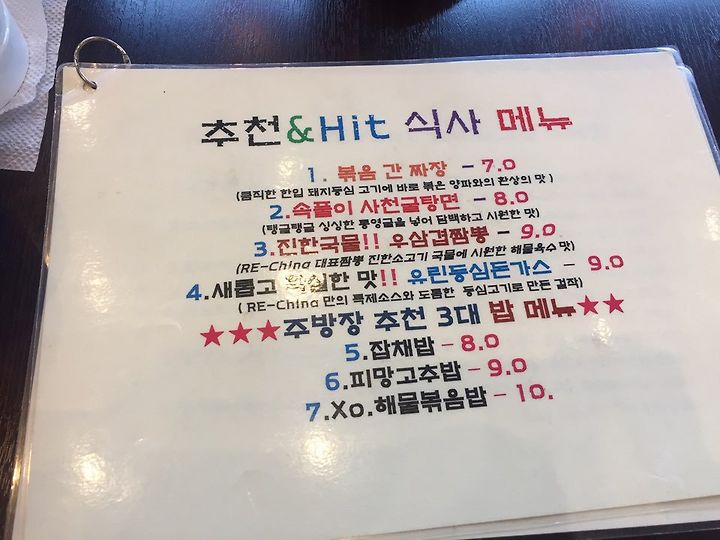 추천&Hit 식사 메뉴
1. 볶음 간 짜장 - 7.0
(큼직한 한입 돼지등심 고기에 바로 볶은 양파와의 환상의 맛)
2.속풀이 사천굴탕면 - 8.0
(탱글탱글 싱싱한 통영굴을 넣어 담백하고 시원한 맛)
3.진한국물!! 우삼겹짬뽕 - 9.0
(RE-China 대표짬뽕 진한소고기 국물에 시원한 해물육수 맛)
4.새롭고 맛!! 유린등심돈가스 - 9.0
(RE-China 만의 특제소스와 도톰한 등심고기로 만든 걸작)
★★★주방장 추천 3대 밥 메뉴★★
5.잡채밥 - 8.0
6.피망고추밥 - 9.0
7.Xo.해물볶음밥 - 10.